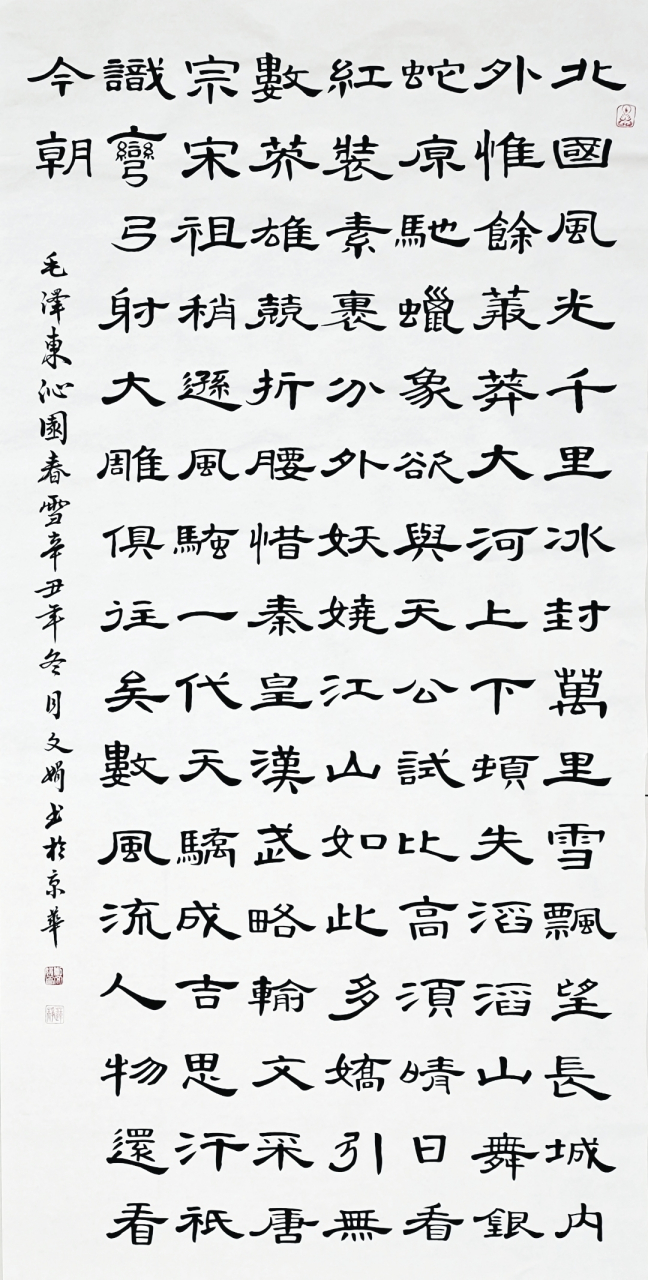 北國風光千里冰封萬里雪飄望長城内
外惟餘莽莽大河上下頓失滔滔山舞銀
蛇原馳蠟象欲與天公試比高須晴日看
紅裝素裹分外妖嬈江山如此多嬌引無
數英雄競折腰惜秦皇漢武略輸文采唐
宗宋祖稍遜風騷一代天驕成吉思汗祇
識彎弓射大雕俱往矣數風流人物還看
今朝
毛澤東沁園春雪辛丑年冬月文娟书於京華